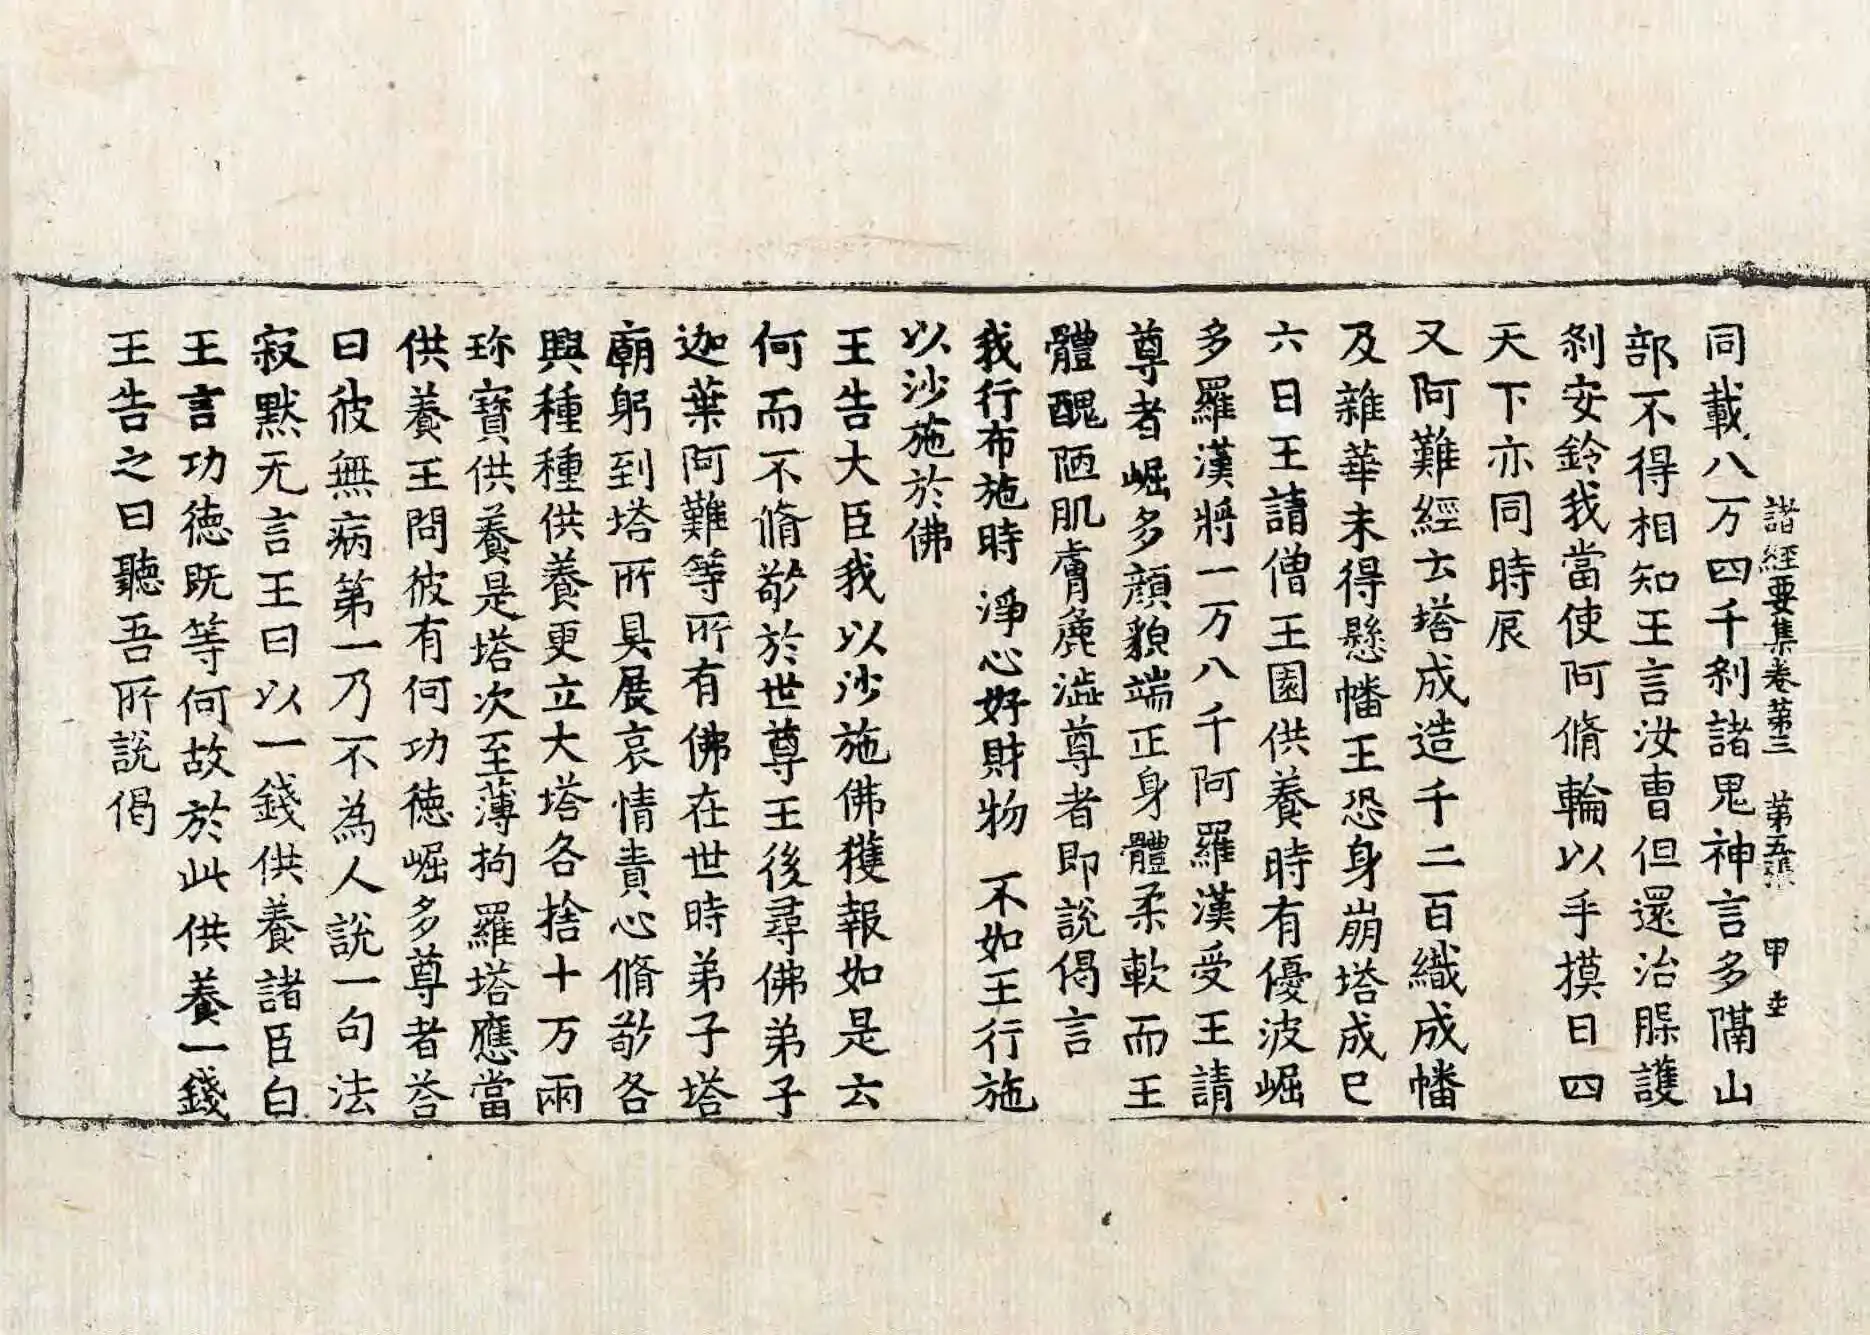 諸經要集卷第三 第五張 甲
同載八万四千剎諸鬼神言多隔山
部不得相知王言汝曹但還治臊護
剎安鈴我當使阿脩輪以手摸日四
天下亦同時辰
又阿難經云塔成造千二百織成幡
及雜華未得懸幡王恐身崩塔成巳
六日王請僧王園供養時有優波崛
多羅漢將一万八千阿羅漢受王請
尊者崛多顔貌端正身體柔軟而王
體醜陋肌膚麁澁尊者即說偈言
我行布施時 淨心好財物 不如王行施
以沙施於佛
王告大臣我以沙施佛獲報如是云
何而不脩敬於世尊王後尋佛弟子
迦葉阿難等所有佛在世時弟子塔
廟躬到塔所具展哀情責心脩敬各
興種種供養更立大塔各捨十万兩
珎寶供養是塔次至薄拘羅塔應當
供養王問彼有何功徳崛多尊者荅
曰彼無病第一乃不為人說一句法
寂默无言王曰以一錢供養諸臣白
王言功徳既等何故於此供養一錢
王告之曰聽吾所説偈